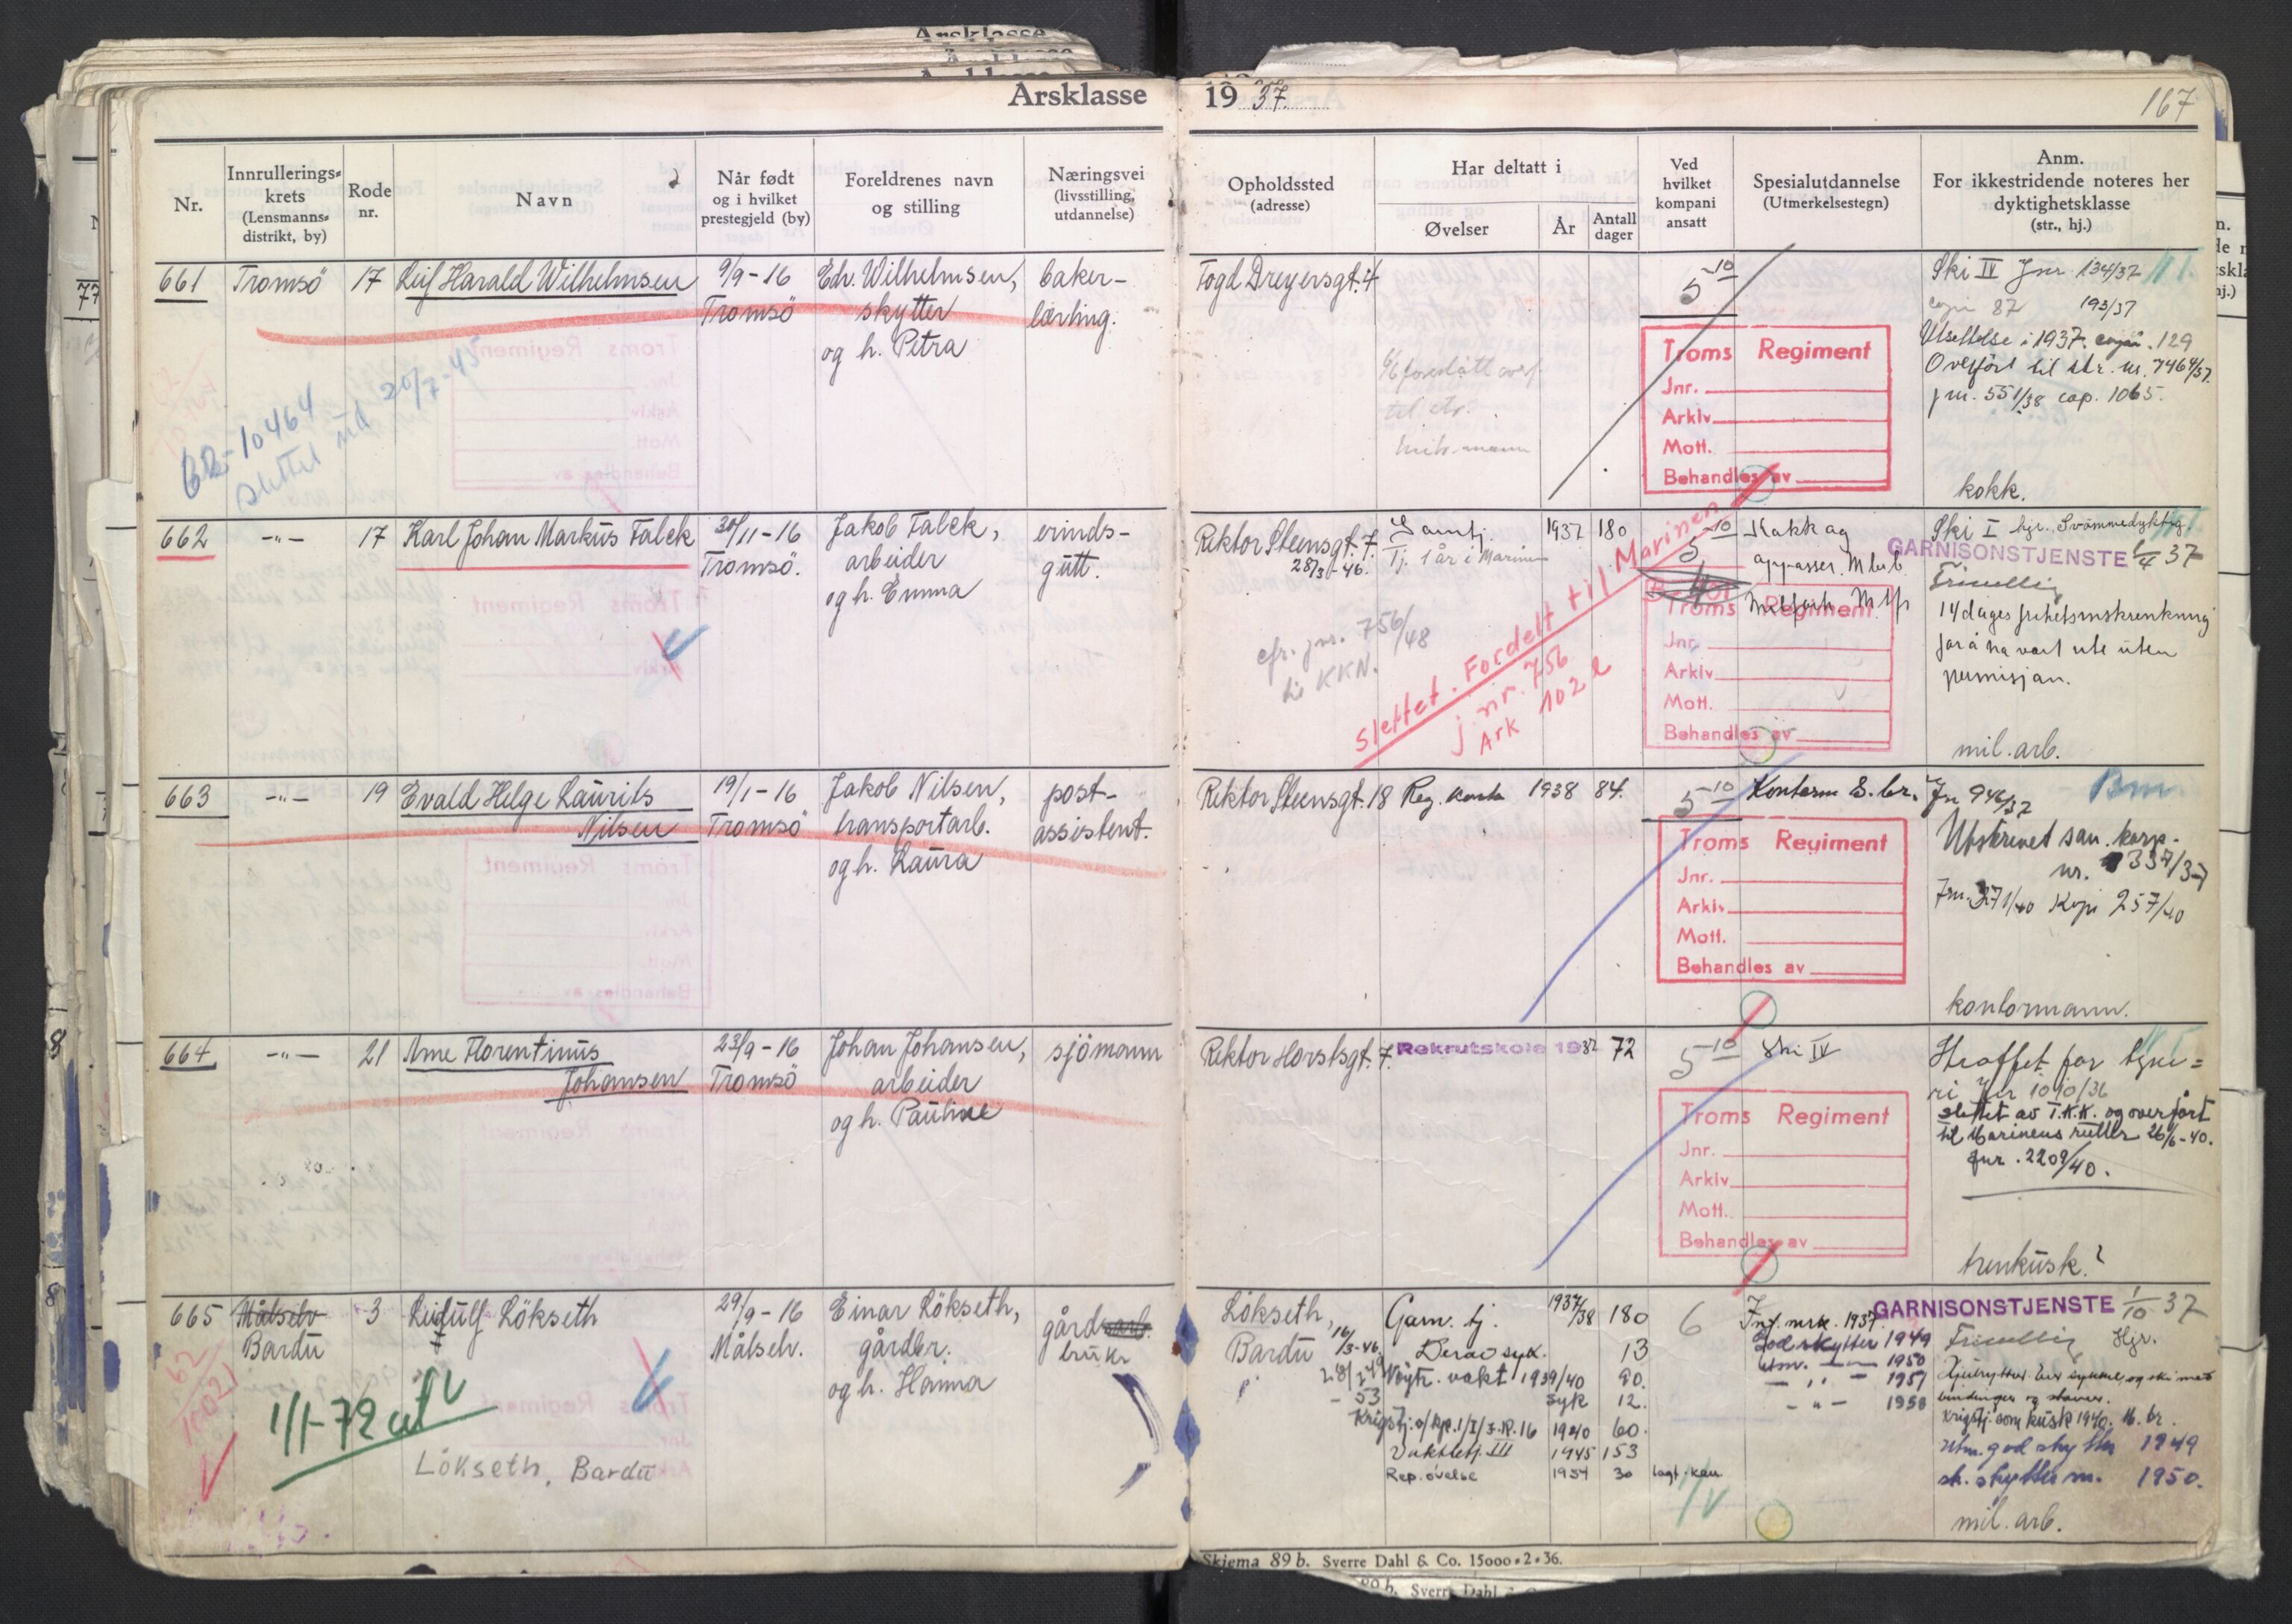 Årsklasse 1937. 167
Nr.
Innrullerings-
krets
(Lensmanns-
distrikt, by)
Rode
nr.
Navn
Når født
og i hvilket
prestegjeld (by)
Foreldrenes navn
og stilling
Næringsvei
(livsstilling,
utdannelse)
Opholdssted
(adresse)
Har deltatt i
Øvelser
År
Antall
dager
Ved
hvilket
kompani
ansatt
Spesialutdannelse
(Utmerkelsestegn)
Anm.
For ikkestridende noteres her
dyktighetsklasse
(str., hj.)
661 Tromsö 17 Leif Harald Wilhelmsen 9/9-16
Tromsö
Edv. Wilhelmsen,
skytter
og h. Petra
baker-
lærling.
10464
slettet 20/7-45
Fogd Dreyersgt. 4
til str.
5-10
Troms Regiment
Jnr.
Arkiv
Mott.
Behandles av
Ski IV Jnr 134/37
87 193/37
Utsettelse i 1937. 129
Overfört til str. nr. 746 4/37.
jnr. 551/38 cop. 1065.
kokk.
662 -"- 17 Karl Johan Markus Falck 30/11-16
Tromsö.
Jakob Falck,
arbeider
og h. Emma
erinds-
gutt.
Rektor Steensgt. 7.
28/3-46.
Tj. 1 år i Marinen
1937 180
5-10
cfr. jnr. 756/48
KKN.
Slettet. Fordelt til Marinen
j. nr. 756
Ark 102
Troms Regiment
Jnr.
Arkiv
Mott.
Behandles av
Ski I hjr. Svömmedyktig.
GARNISONSTJENSTE 37
Frivillig
14 dages frihetsinskrenkning
for å ha vært ute uten
permisjon.
mil. arb.
663 -"- 19 Evald Helge Laurits
Nilsen
19/1-16
Tromsö
Jakob Nilsen,
transportarb.
og h. Laura
post-
assistent.
Rektor Steensgt. 18 1938 84.
5-10
Troms Regiment
Jnr.
Arkiv
Mott.
Behandles av
Jnr 946/37
Utskrevet san. korp.
nr. 337/37
Jnr. 371/40 Kopi 257/40
kontormann.
664 -"- 21 Arne Florentinus
Johansen
23/9-16
Tromsö
Johan Johansen,
arbeider
og h. Pauline
sjömann
Rektor Horstsgt. 7. Rekrutskole 1937 72
5-10
Ski IV
Troms Regiment
Jnr.
Arkiv
Mott.
Behandles av
Straffet for tyve=
ri Jnr 1090/36
slettet av T.K.K. og overfört
til Marinens ruller 26/6-40.
Jnr. 2209/40.
trenkusk?
665 Målselv
Bardu
3 Leidulf Lökseth 29/9-16
Målselv.
Einar Lökseth,
gårdbr.
og h. Hanna
gårdarb.
bruker
1/1-72
Lökseth, Bardu
Lökseth,
Bardu
Garn. tj. 1937/38 180
13
Nöytr. vakt 1939/40 90.
12.
Krigstj. 1940 60.
Vakttj. III 1945 153
Rep. övelse 1954 30
6
Inf. mrk. 1937
God skytter 1949
1950
1951
GARNISONSTJENSTE 1/10 37
Frivillig Hjr.
Krigstj. som kusk 1940.
Utm. god skytter 1949
1950.
mil. arb.
Skjema 89 b. Sverre Dahl & Co. 15000-2-36.